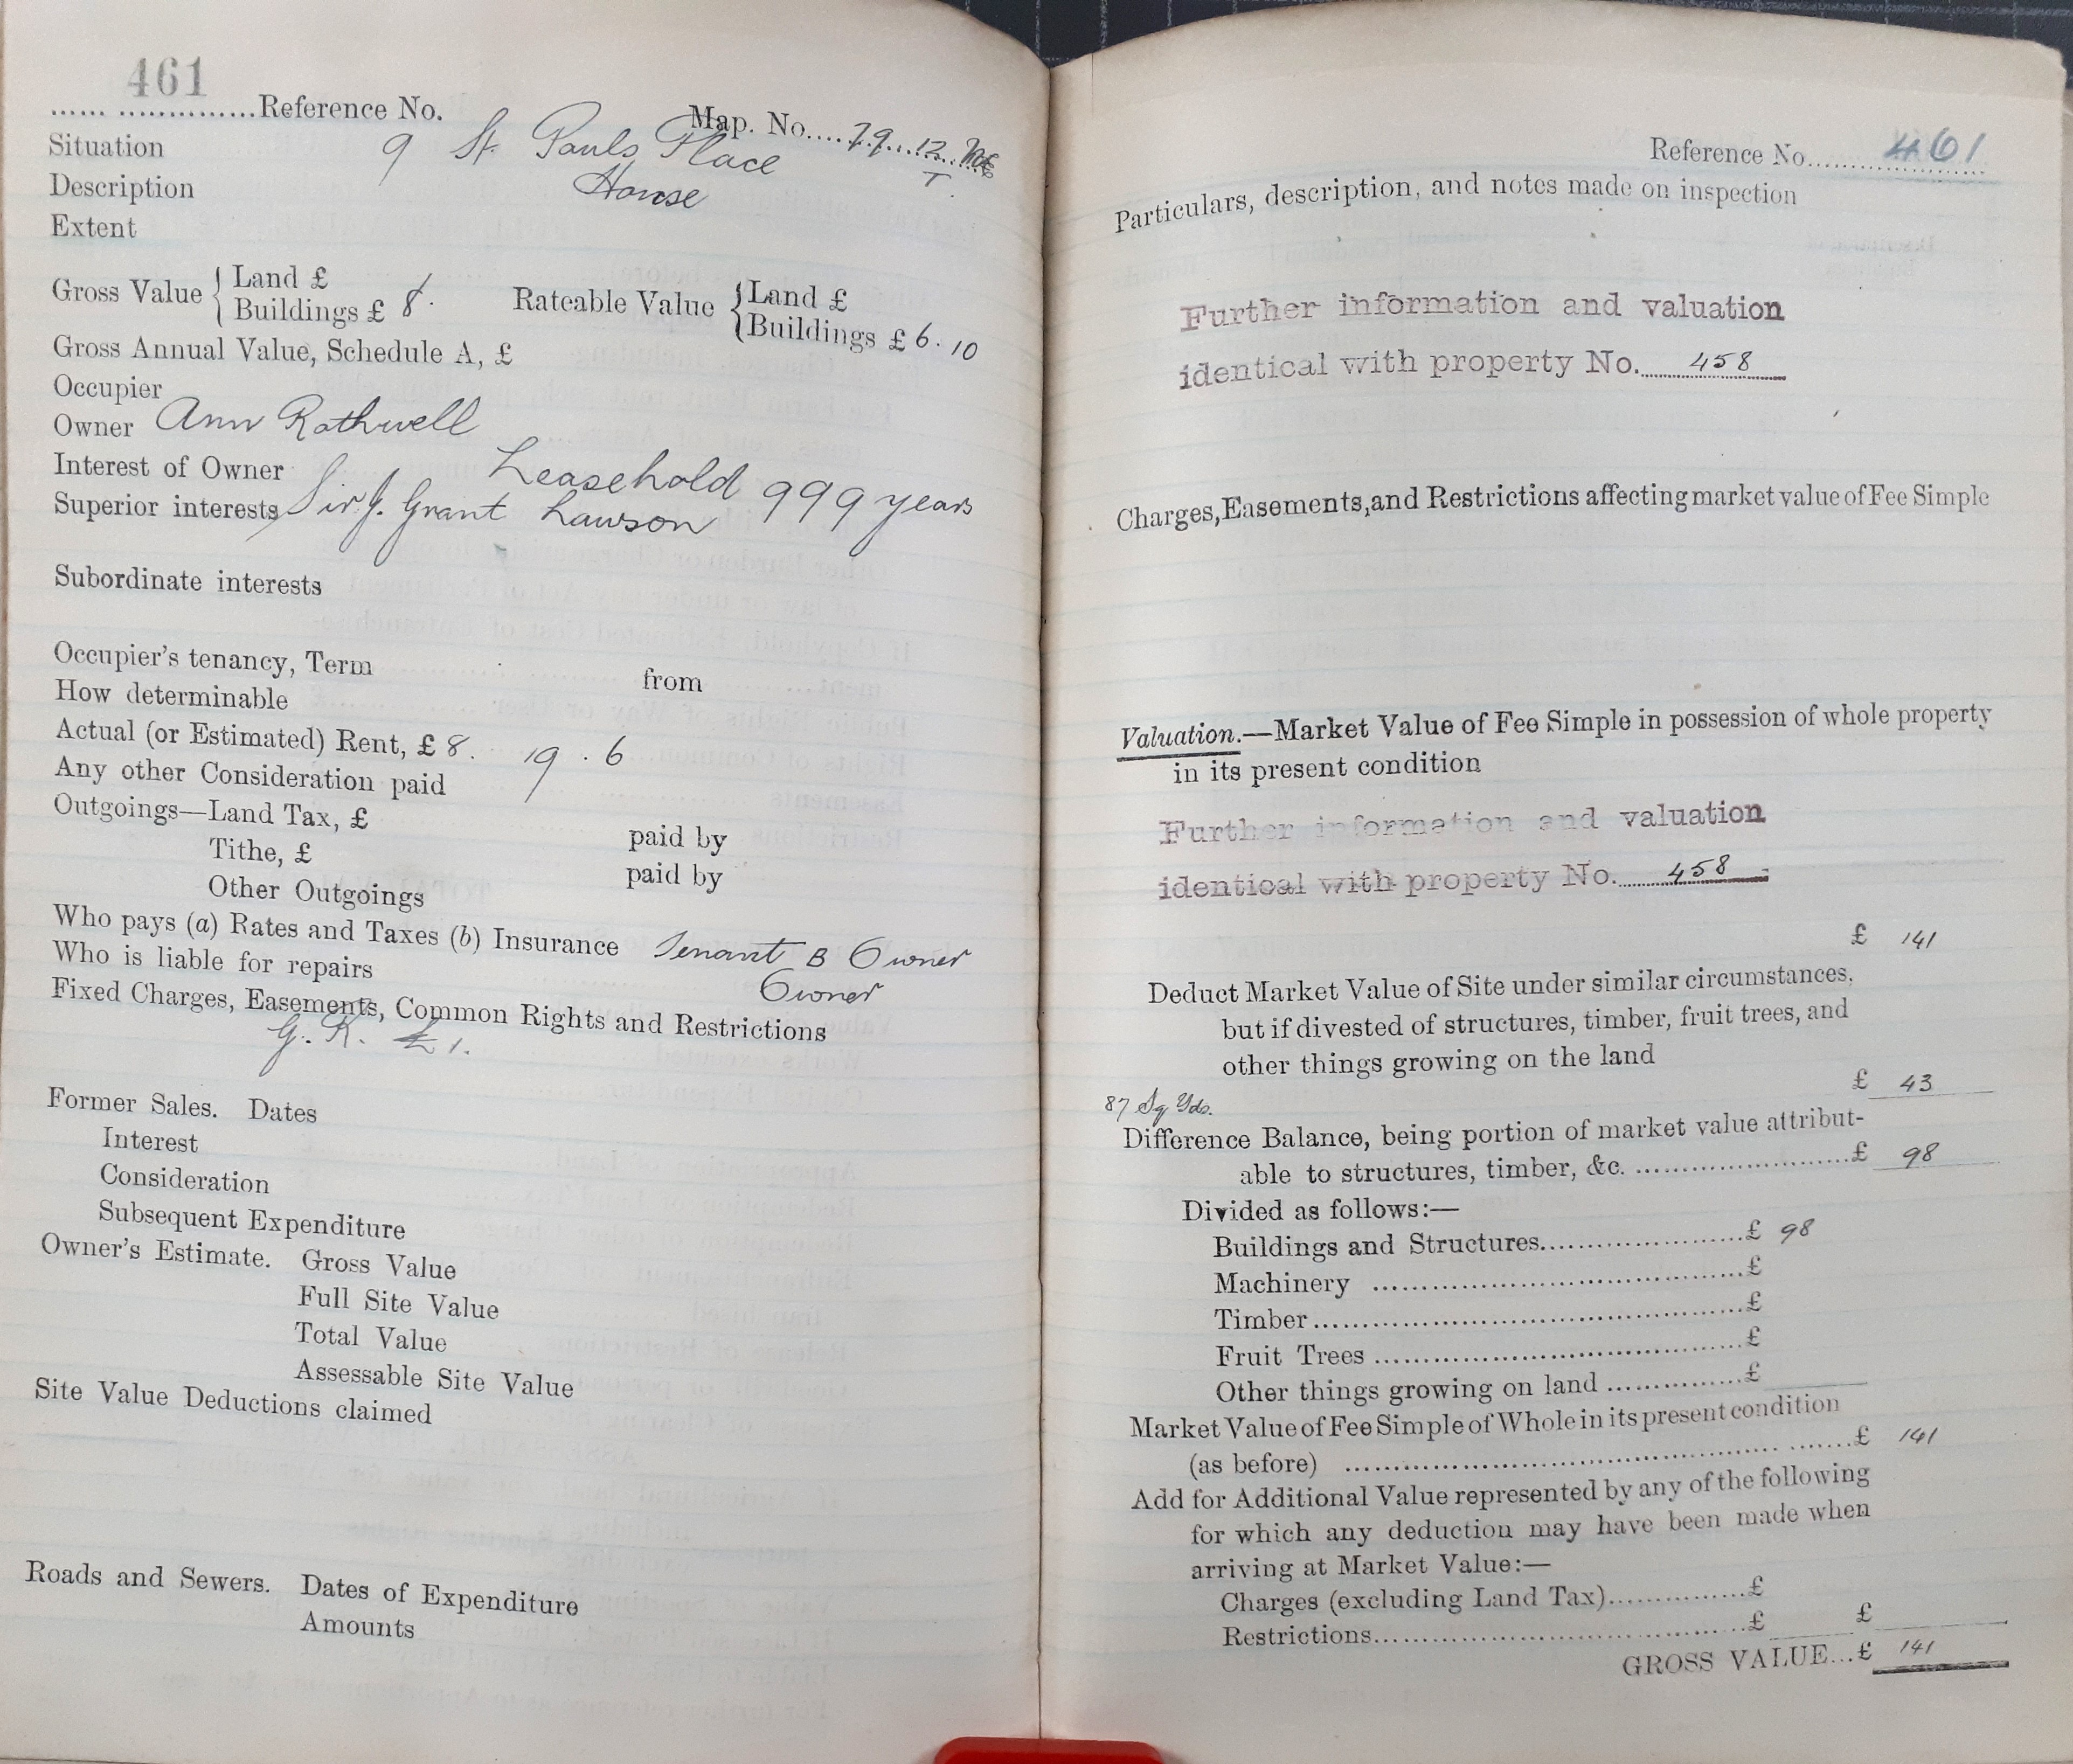 461
...... ..............Reference No. Map. No.... 79 12
T.
Situation 9 St. Pauls Place
Description House
Extent
Gross Value { Land £
Buildings £ 8. Rateable Value { Land £
Buildings £ 6. 10
Gross Annual Value, Schedule A, £
Occupier
Owner Ann Rothwell
Interest of Owner Leasehold 999 years
Superior interests Sir J. Grant Lawson
Subordinate interests
Occupier's tenancy, Term from
How determinable
Actual (or Estimated) Rent, £ 8. 19 . 6
Any other Consideration paid
Outgoings—Land Tax, £ paid by
Tithe, £ paid by
Other Outgoings
Who pays (a) Rates and Taxes (b) Insurance Tenant B Owner
Who is liable for repairs Owner
Fixed Charges, Easements, Common Rights and Restrictions
G. R. £1.
Former Sales. Dates
Interest
Consideration
Subsequent Expenditure
Owner's Estimate. Gross Value
Full Site Value
Total Value
Assessable Site Value
Site Value Deductions claimed
Roads and Sewers. Dates of Expenditure
Amounts
Reference No.......... 461
Particulars, description, and notes made on inspection
Further information and valuation
identical with property No. 458
Charges, Easements, and Restrictions affecting market value of Fee Simple
Valuation.—Market Value of Fee Simple in possession of whole property
in its present condition
Further information and valuation
identical with property No. 458
£ 141
Deduct Market Value of Site under similar circumstances,
but if divested of structures, timber, fruit trees, and
other things growing on the land
£ 43
87 Sq Yds.
Difference Balance, being portion of market value attribut-
able to structures, timber, &c. ..........................£ 98
Divided as follows:—
Buildings and Structures........................£ 98
Machinery ..........................................£
Timber..................................................£
Fruit Trees ..........................................£
Other things growing on land ................£
Market Value of Fee Simple of Whole in its present condition
(as before) ..........................................................£ 141
Add for Additional Value represented by any of the following
for which any deduction may have been made when
arriving at Market Value:—
Charges (excluding Land Tax).................£
Restrictions..........................................£ £
GROSS VALUE...£ 141